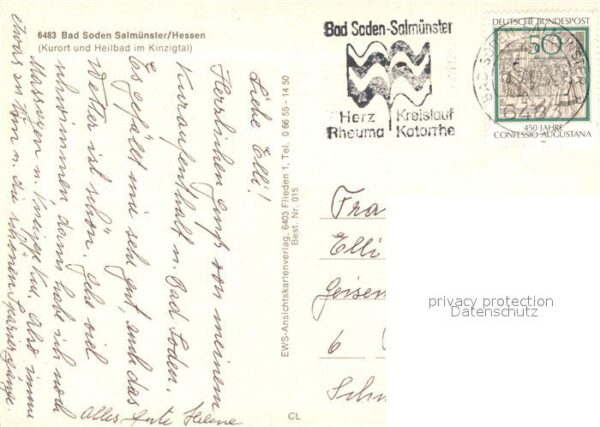 6483 Bad Soden Salmünster/Hessen
(Kurort und Heilbad im Kinzigtal)
Liebe Elli!
Herzlichen Gruß von meinem
Kuraufenthalt in Bad Soden.
Es gefällt mir sehr gut, auch das
Wetter ist schön. Geh viel
schwimmen dann hab ich noch
Massagen u. Kneipp Kur. Also immer
etwas zu tun u. die schönen Spaziergänge.
Alles Gute Helene
EWS-Ansichtskartenverlag, 6403 Flieden 1, Tel. 0 66 55 - 14 50
Best. Nr. 015
CL
Bad Soden-Salmünster
Herz Kreislauf
Rheuma Katarrhe
DEUTSCHE BUNDESPOST
50
450 JAHRE
CONFESSIO AUGUSTANA
BAD SODEN-SALMÜNSTER
Fra
Elli
Geisen
6
Schw
privacy protection
Datenschutz